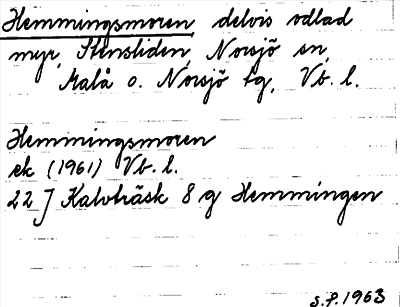 Hemmingsmoren, delvis odlad
myr, Stensliden, Norsjö sn,
Malå o. Norsjö tg, Vb. l.
Hemmingsmoren
ek (1961) Vb. l.
22 J Kalvträsk 8 g Hemmingen
S.P. 1963